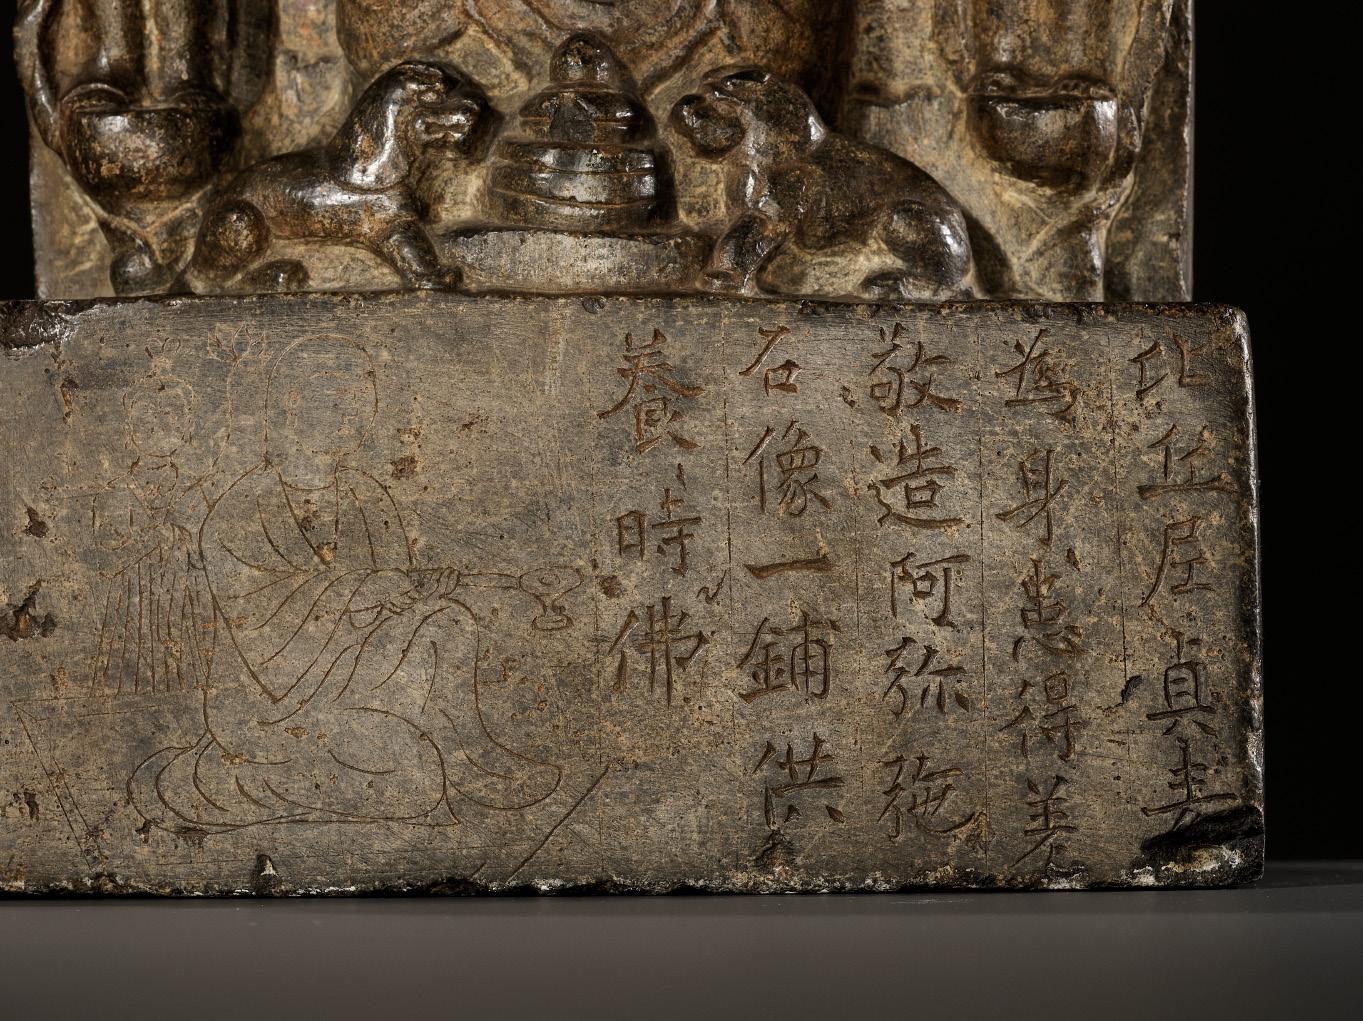 比丘尼貞素
為身患得差
敬造阿弥陁
石像一鋪供
養時佛